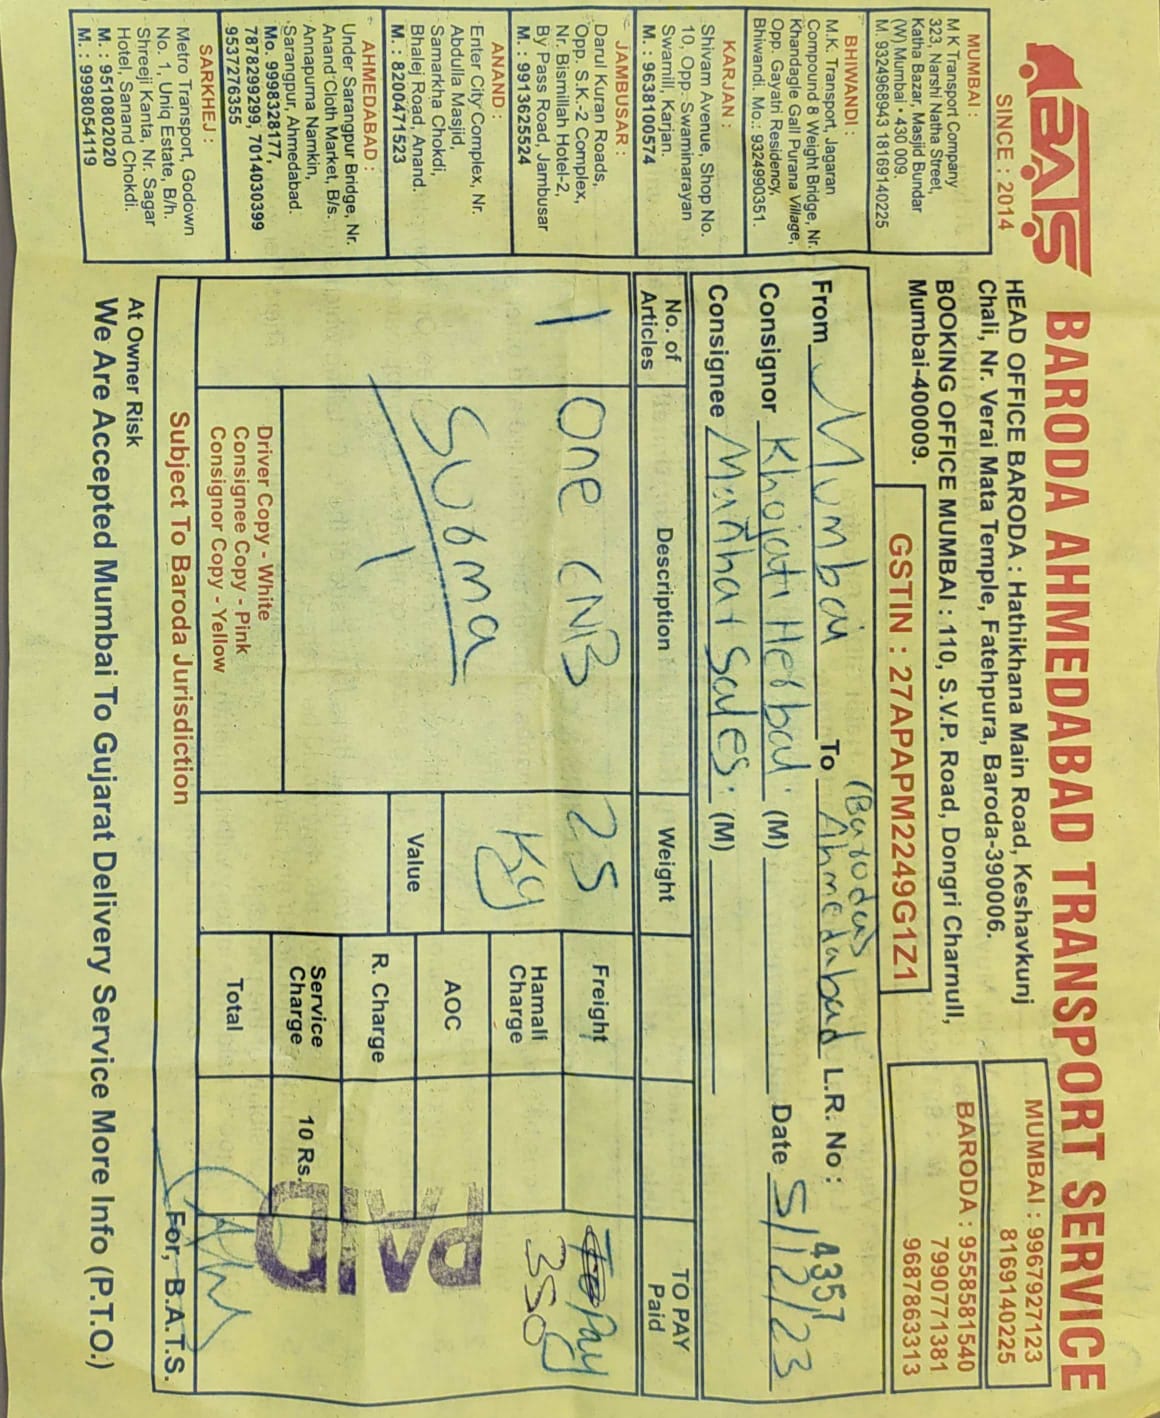 BATS
SINCE : 2014
BARODA AHMEDABAD TRANSPORT SERVICE
HEAD OFFICE BARODA : Hathikhana Main Road, Keshavkunj
Chali, Nr. Verai Mata Temple, Fatehpura, Baroda-390006.
BOOKING OFFICE MUMBAI : 110, S.V.P. Road, Dongri Charnull,
Mumbai-400009.
MUMBAI : 9967927123
8169140225
BARODA : 9558581540
7990771381
9687863313
GSTIN : 27APAPM2249G1Z1
MUMBAI :
M K Transport Company
323, Narshi Natha Street,
Katha Bazar, Masjid Bundar
(W) Mumbai - 430 009.
M. 9324968943 18169140225
BHIWANDI :
M.K. Transport, Jagaran
Compound 8 Weight Bridge, Nr.
Khandagle Gall Purana Village,
Opp. Gayatri Residency,
Bhiwandi. Mo.: 9324990351.
KARJAN :
Shivam Avenue, Shop No.
10, Opp. Swaminarayan
Swamill, Karjan.
M. : 9638100574
JAMBUSAR :
Darul Kuran Roads,
Opp. S.K.-2 Complex,
Nr. Bismillah Hotel-2,
By Pass Road, Jambusar
M. : 9913625524
ANAND :
Enter City Complex, Nr.
Abdulla Masjid,
Samarkha Chokdi,
Bhalej Road, Anand.
M. : 8200471523
AHMEDABAD :
Under Sarangpur Bridge, Nr.
Anand Cloth Market, B/s.
Annapurna Namkin,
Sarangpur, Ahmedabad.
Mo. 9998328177,
7878299299, 7014030399
9537276355
SARKHEJ :
Metro Transport, Godown
No. 1, Uniq Estate, B/h.
Shreeji Kanta, Nr. Sagar
Hotel, Sanand Chokdi.
M. : 9510802020
M. : 9998054119
(Baroda)
From Mumbai To Ahmedabad L.R. No : 4357
Consignor Khojati Herbal (M) Date 5/12/23
Consignee Manhar Sales. (M)
No. of Articles Description Weight TO PAY Paid
1 One CNB 25 Kg Freight To Pay
350
Suoma
Hamali Charge
AOC
Value
R. Charge
Service Charge 10 Rs.
Total
PAID
Driver Copy - White
Consignee Copy - Pink
Consignor Copy - Yellow
Subject To Baroda Jurisdiction For, B.A.T.S.
At Owner Risk
We Are Accepted Mumbai To Gujarat Delivery Service More Info (P.T.O.)